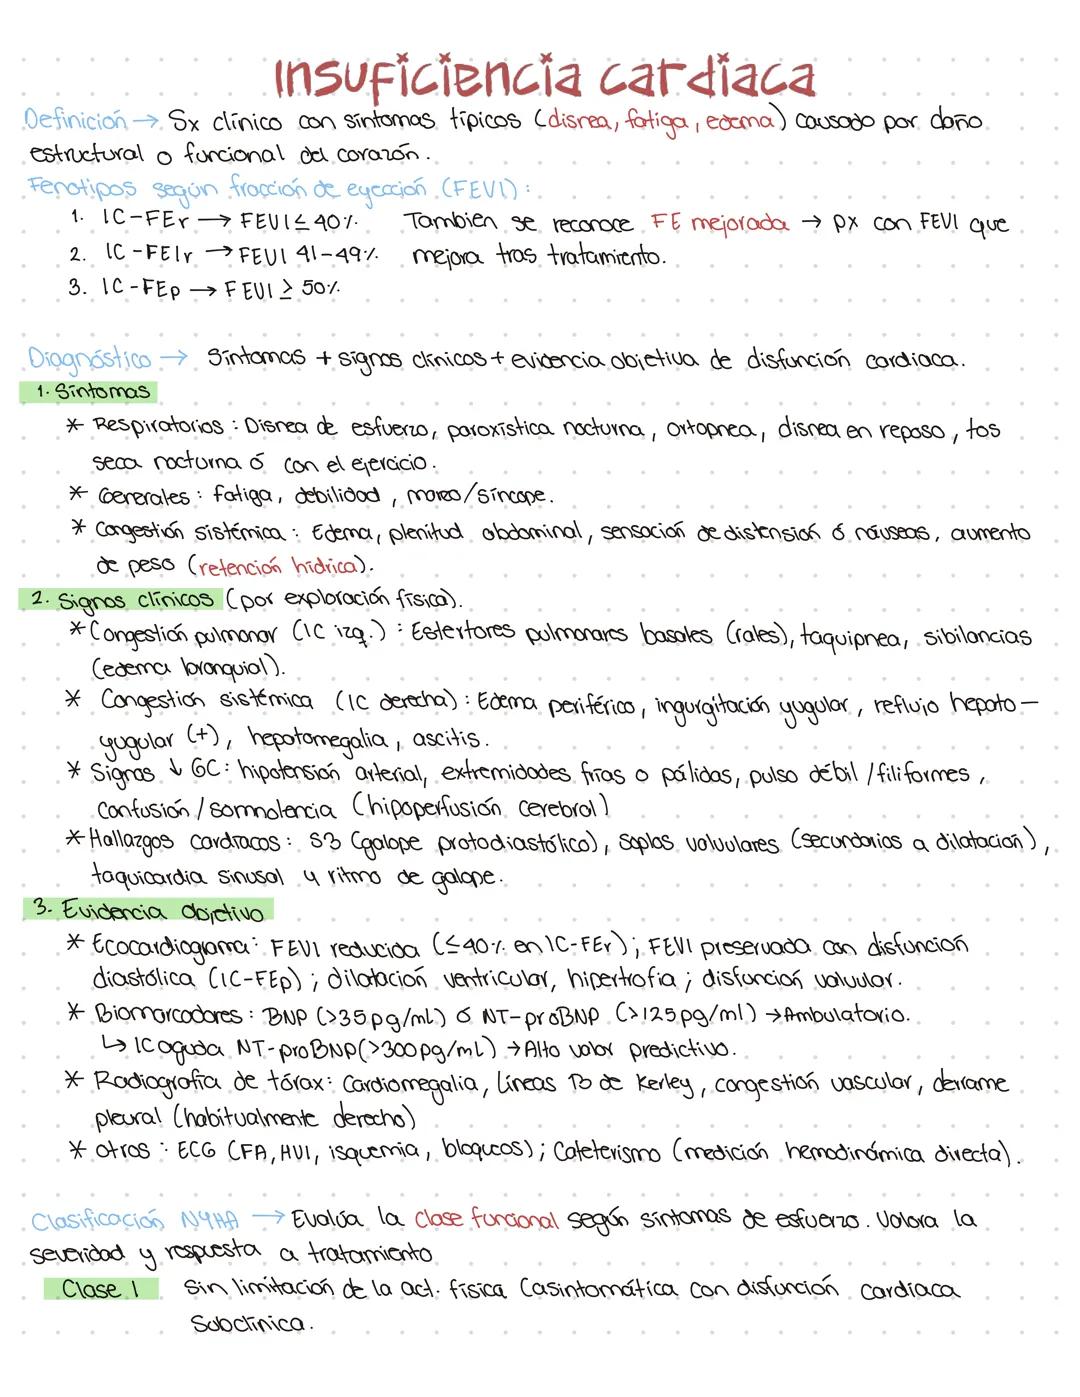 Insuficiencia cardiaca
Definición → Sx clínico con síntomas típicos (disnea, fatiga, edema) causado por daño
estructural o funcional del corazón.
Fenotipos según fracción de eyección (FEVI):
1. IC-FEr → FEVI ≤ 40%. También se reconoce FE mejorada → px con FEVI que
2. IC-FEIr → FEVI 41-49%. mejora tras tratamiento.
3. IC-FEp → FEVI ≥ 50%
Diagnóstico → Síntomas + signos clínicos + evidencia objetiva de disfunción cardiaca.
1. Síntomas
* Respiratorios: Disnea de esfuerzo, paroxística nocturna, ortopnea, disnea en reposo, tos
seca nocturna ó con el ejercicio.
* Generales: fatiga, debilidad, mareo/síncope.
* Congestión sistémica: Edema, plenitud abdominal, sensación de distensión ó náuseas, aumento
de peso (retención hídrica).
2. Signos clínicos (por exploración física).
* Congestión pulmonar (IC izq.): Estertores pulmonares basales (rales), taquipnea, sibilancias
(edema bronquial).
* Congestión sistémica (IC derecha): Edema periférico, ingurgitación yugular, reflujo hepato-
yugular (+), hepatomegalia, ascitis.
* Signos ↓ GC: hipotensión arterial, extremidades frías o pálidas, pulso débil/filiformes,
Confusión/somnolencia (hipoperfusión cerebral)
* Hallazgos cardiacos: S3 (galope protodiastólico), soplos valvulares (secundarios a dilatación),
taquicardia sinusal y ritmo de galope.
3. Evidencia objetivo
* Ecocardiograma: FEVI reducida (≤40% en IC-FEr); FEVI preservada con disfunción
diastólica (IC-FEp); dilatación ventricular, hipertrofia; disfunción valvular.
* Biomarcadores: BNP (>35pg/ml) ó NT-proBNP (>125pg/ml) → Ambulatorio.
↳ IC aguda NT-proBNP (>300pg/mL) → Alto valor predictivo.
* Radiografía de tórax: Cardiomegalia, Líneas B de Kerley, congestión vascular, derrame
pleural (habitualmente derecho)
* otros: ECG (FA, HVI, isquemia, bloqueos); Cateterismo (medición hemodinámica directa).
Clasificación NYHA → Evalúa la clase funcional según síntomas de esfuerzo. Valora la
severidad y respuesta a tratamiento
Clase I Sin limitación de la act. física (asintomática con disfunción cardiaca
Subclínica.